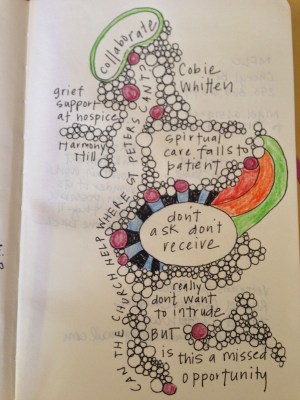 collaborate
Cobie
Whitten
grief
support
at hospice
Harmony
Hill
spirtual
care falls to
patient
CAN THE CHURCH HELP WHERE ST PETERS CAN'T
dont
ask don't
receive
really
dont want
to intrude
BUT
is
this a missed
opportunity